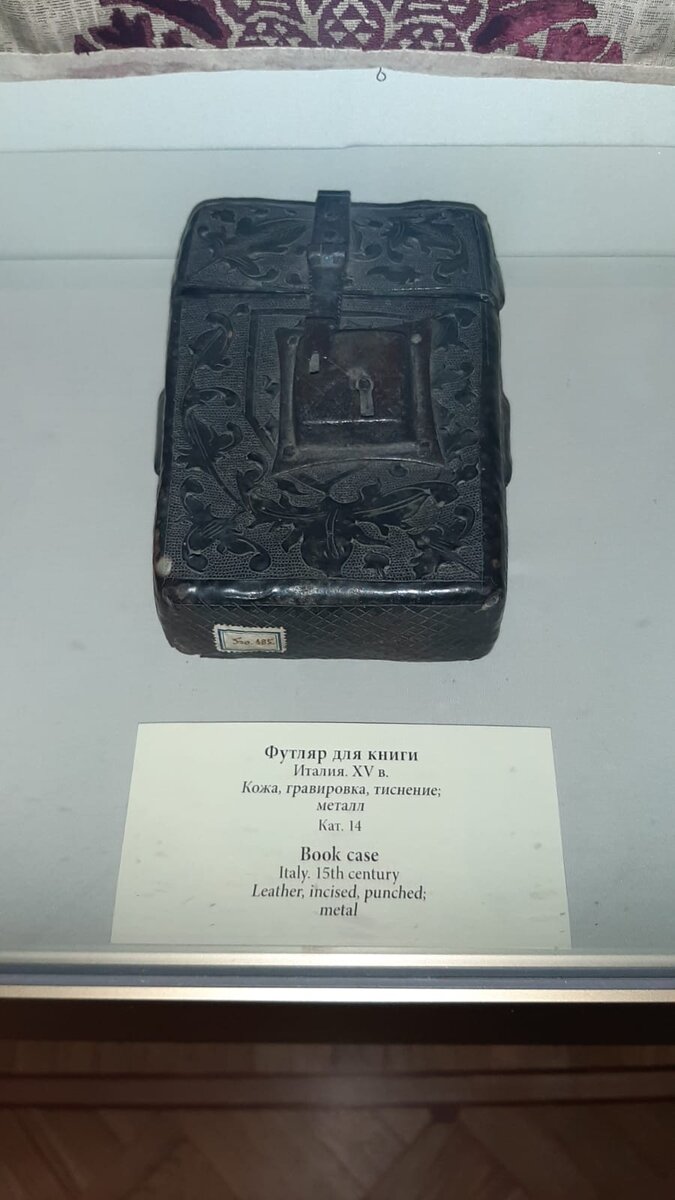 Футляр для книги
Италия. XV в.
Кожа, гравировка, тиснение;
металл
Кат. 14
Book case
Italy. 15th century
Leather, incised, punched;
metal